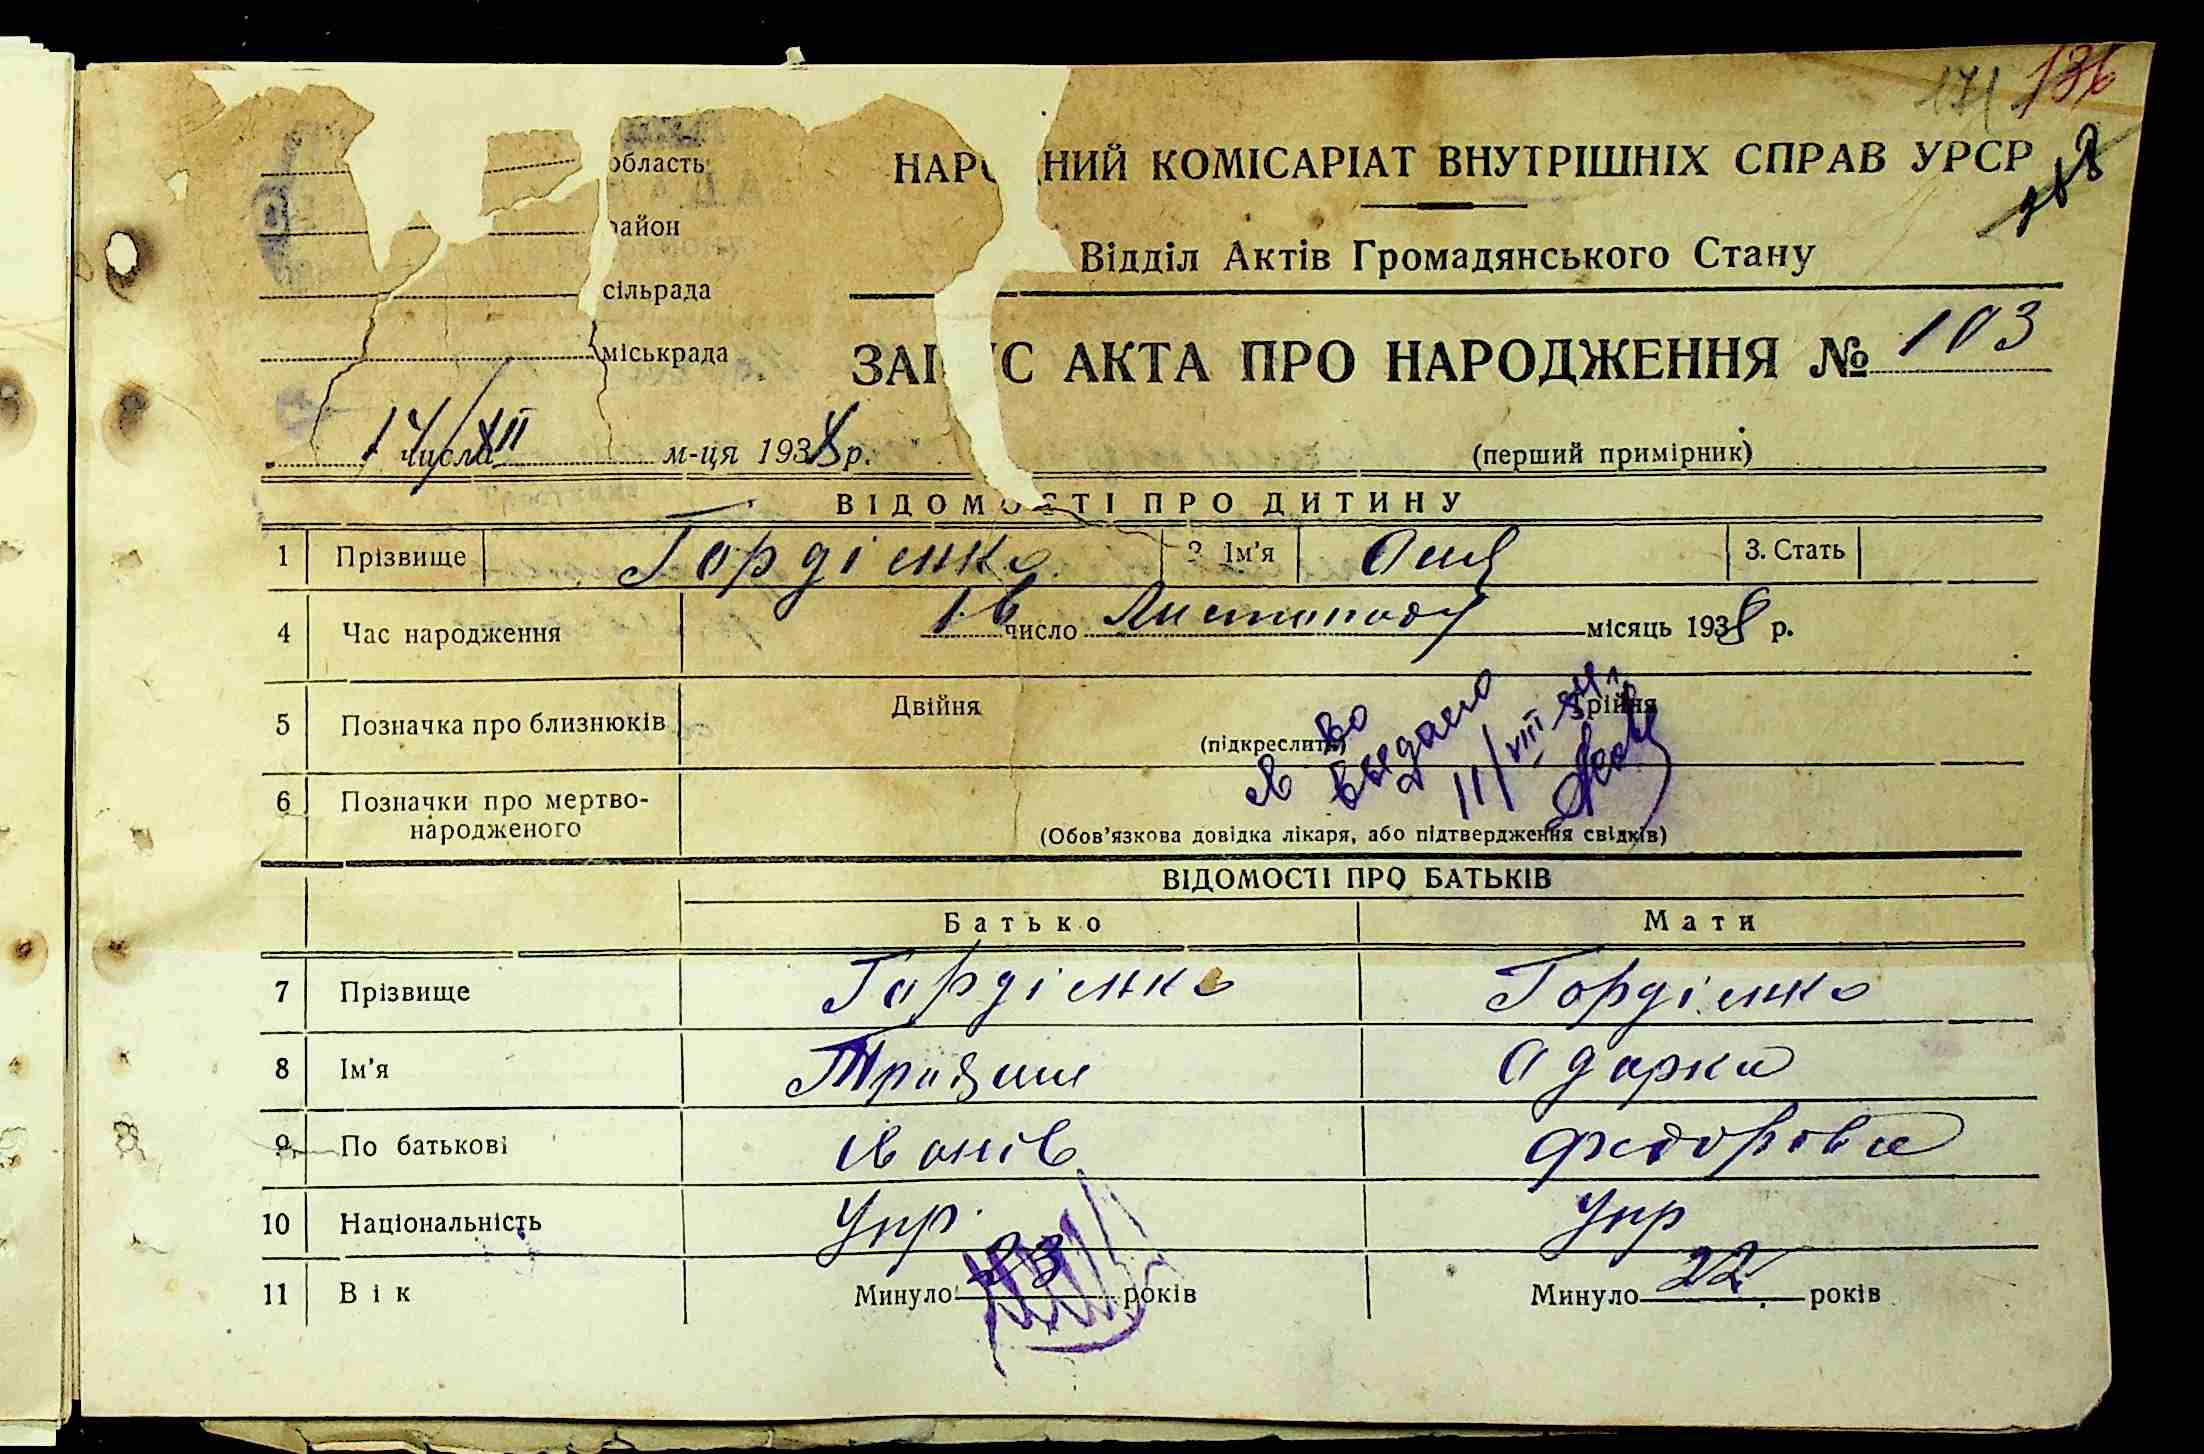 171 136
область
НАР НИЙ КОМІСАРІАТ ВНУТРІШНІХ СПРАВ УРСР
район
Відділ Актів Громадянського Стану
сільрада
міськрада
ЗАП С АКТА ПРО НАРОДЖЕННЯ № 103
14/XII числа м-ця 1938 р.
(перший примірник)
ВІДОМОСТІ ПРО ДИТИНУ
1 Прізвище Гордієнко 2 Ім'я Оля 3. Стать
4 Час народження 16 число Листопада місяць 1938 р.
5 Позначка про близнюків Двійня Трійня
(підкреслити)
Св во
выдано
11/VIII
6 Позначки про мертво-
народженого
(Обов'язкова довідка лікаря, або підтвердження свідків)
ВІДОМОСТІ ПРО БАТЬКІВ
Батько Мати
7 Прізвище Гордієнко Гордієнко
8 Ім'я Трохим Одарка
9 По батькові Іванів Федорівна
10 Національність Укр. Укр
11 Вік Минуло 23 років Минуло 22 років